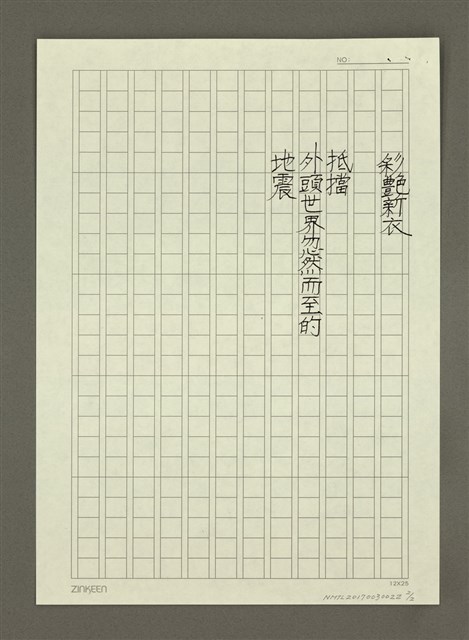 NO:
彩艷新衣
抵擋
外頭世界忽然而至的
地震
ZINKEEN
12X25
NMTL20170030022 2/2